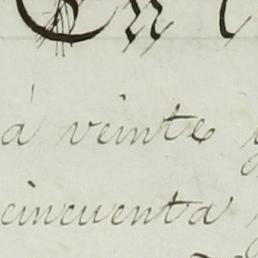 En
á veinte y
cincuenta